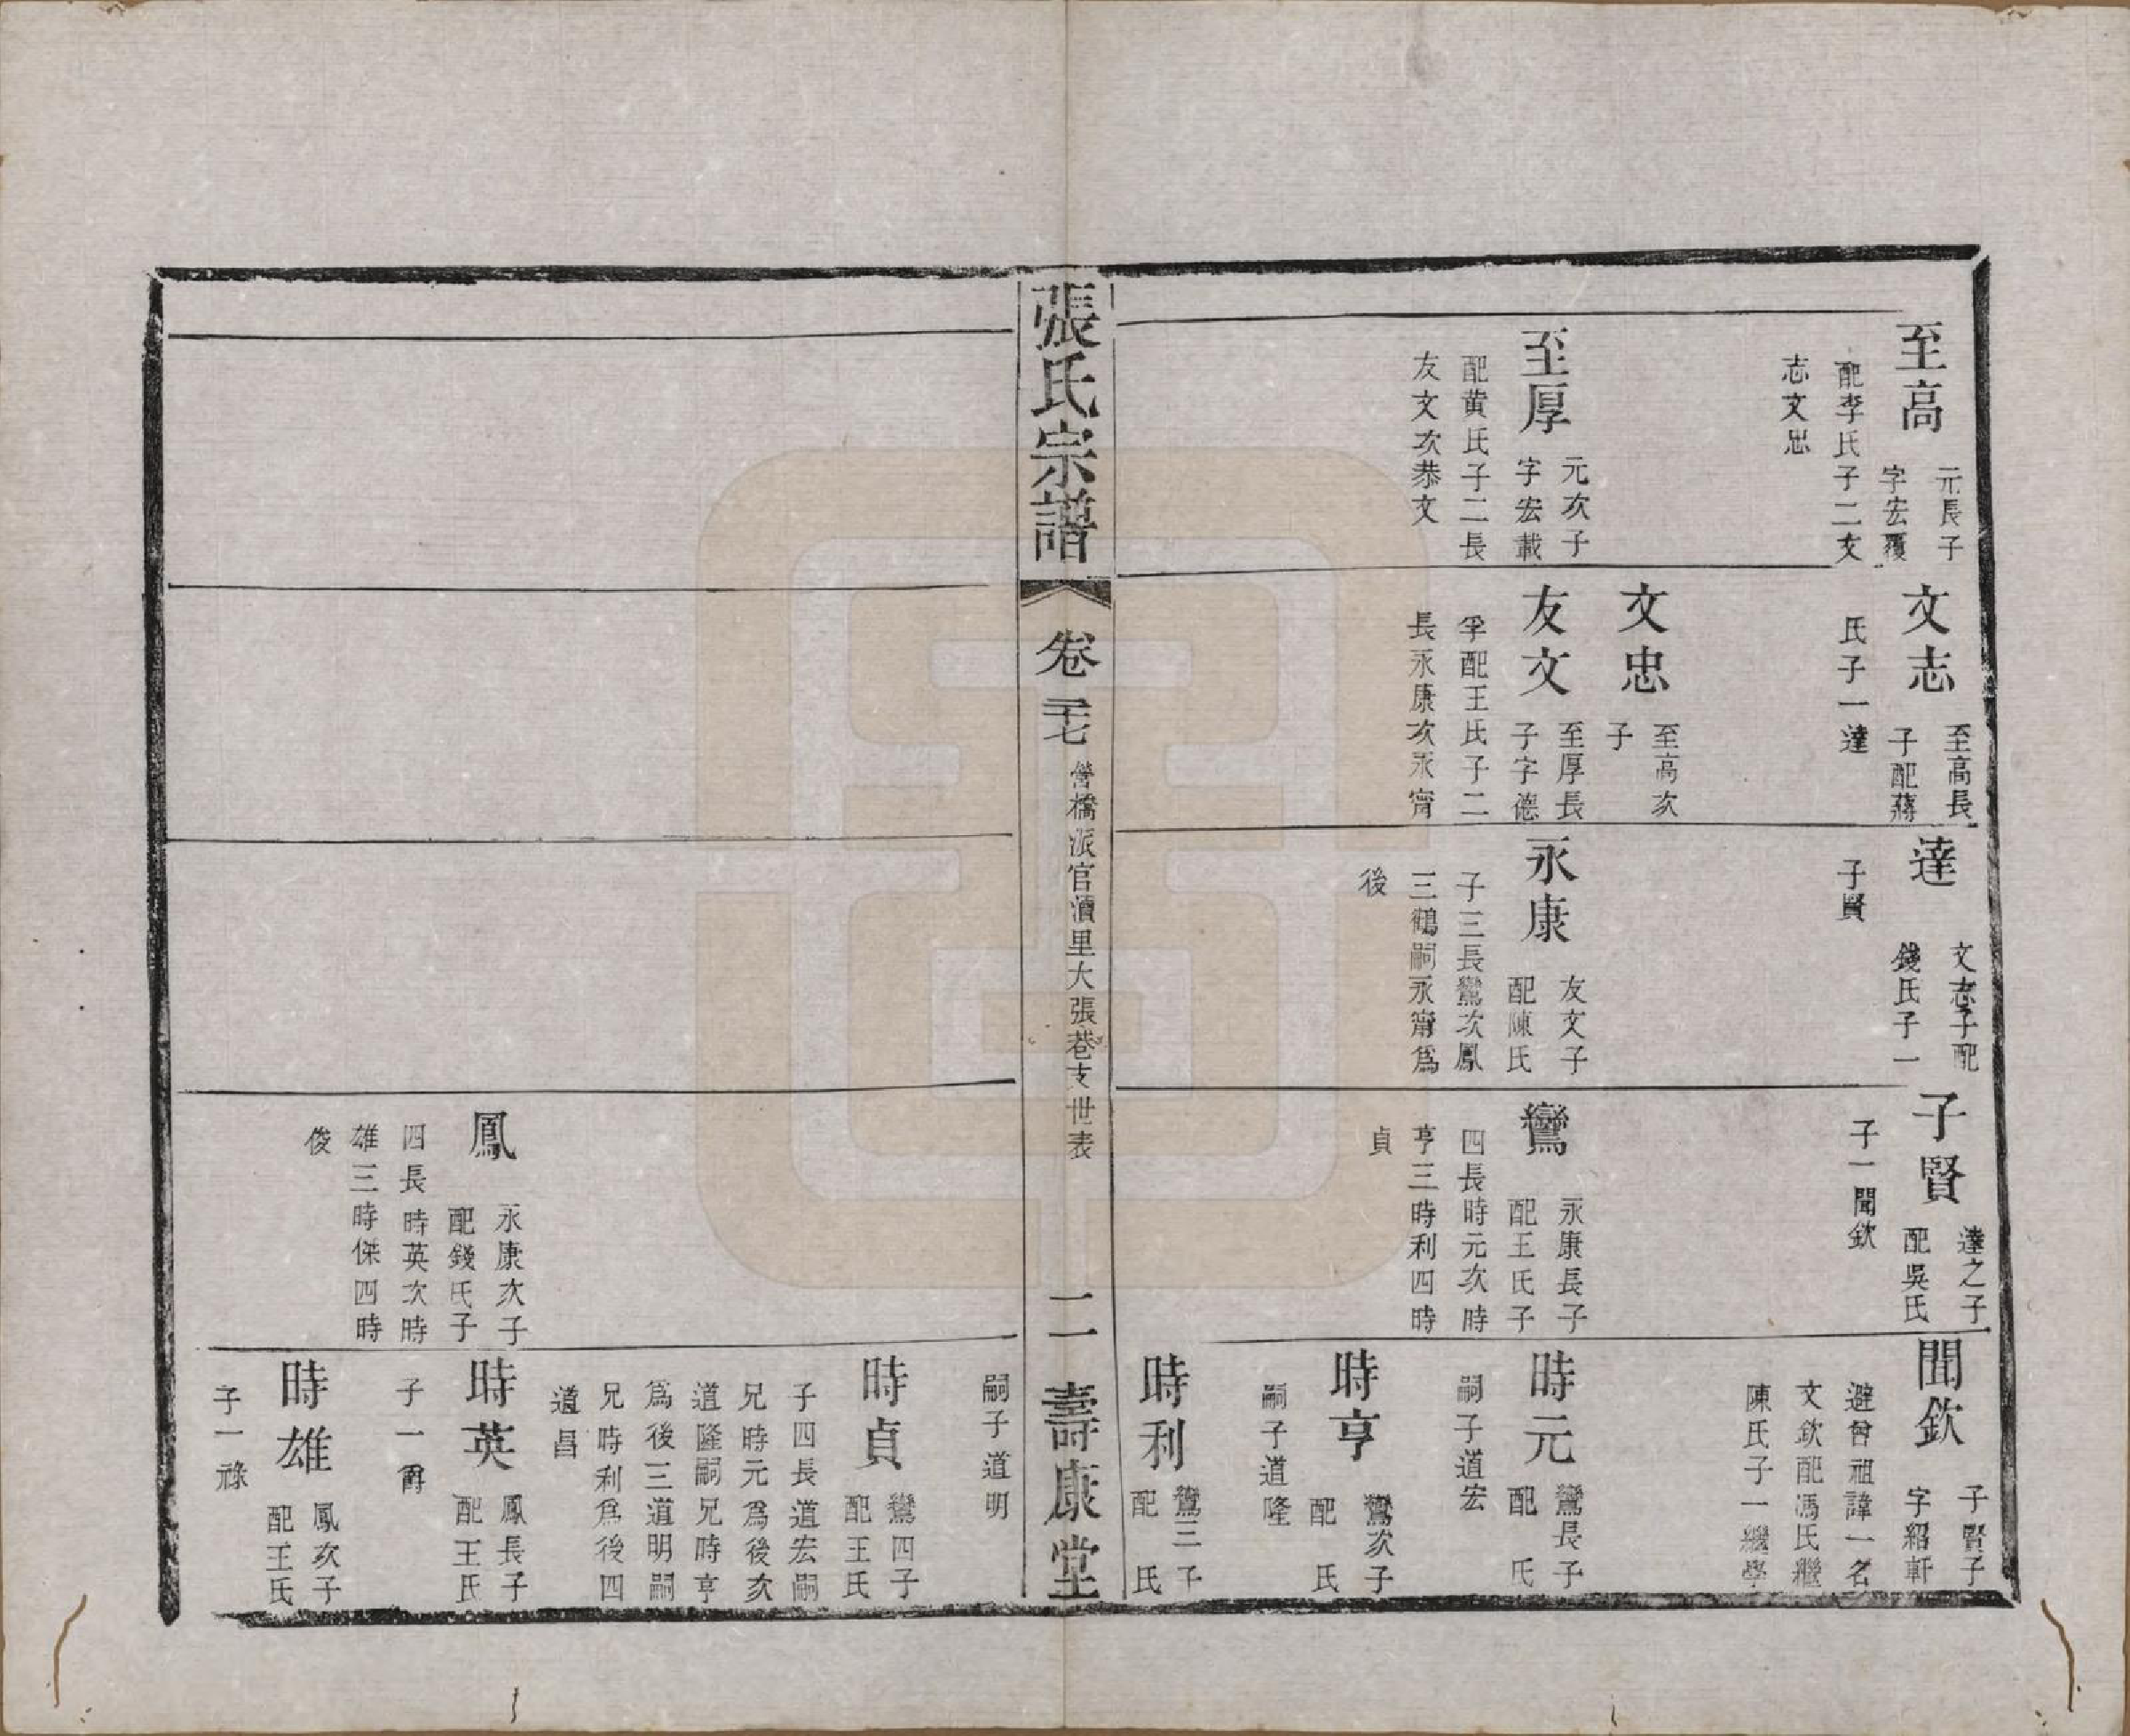 至高
元長子
字宏覆
配李氏子二文
志文忠
至厚
元次子
字宏載
配黄氏子二長
友文次恭文
文志
至高長
子配蔣
氏子一達
文忠
至高次
子
友文
至厚長
子字德
孚配王氏子二
長永康次永甯
達
文志子配
錢氏子一
子賢
永康
友文子
配陳氏
子三長鸞次鳳
三鶴嗣永甯爲
後
子賢
達之子
配吳氏
子一聞欽
鸞
永康長子
配王氏子
四長時元次時
亨三時利四時
貞
聞欽
子賢子
字紹軒
避曾祖諱一名
文欽配馮氏繼
陳氏子一繼學
時元
鸞長子
配 氏
嗣子道宏
時亨
鸞次子
配 氏
嗣子道隆
時利
鸞三子
配 氏
張氏宗譜
卷二十七
營橋派官瀆里大張巷支世表
二
壽康堂
鳳
永康次子
配錢氏子
四長時英次時
雄三時傑四時
俊
嗣子道明
時貞
鸞四子
配王氏
子四長道宏嗣
兄時元爲後次
道隆嗣兄時亨
爲後三道明嗣
兄時利爲後四
道昌
時英
鳳長子
配王氏
子一爵
時雄
鳳次子
配王氏
子一祿